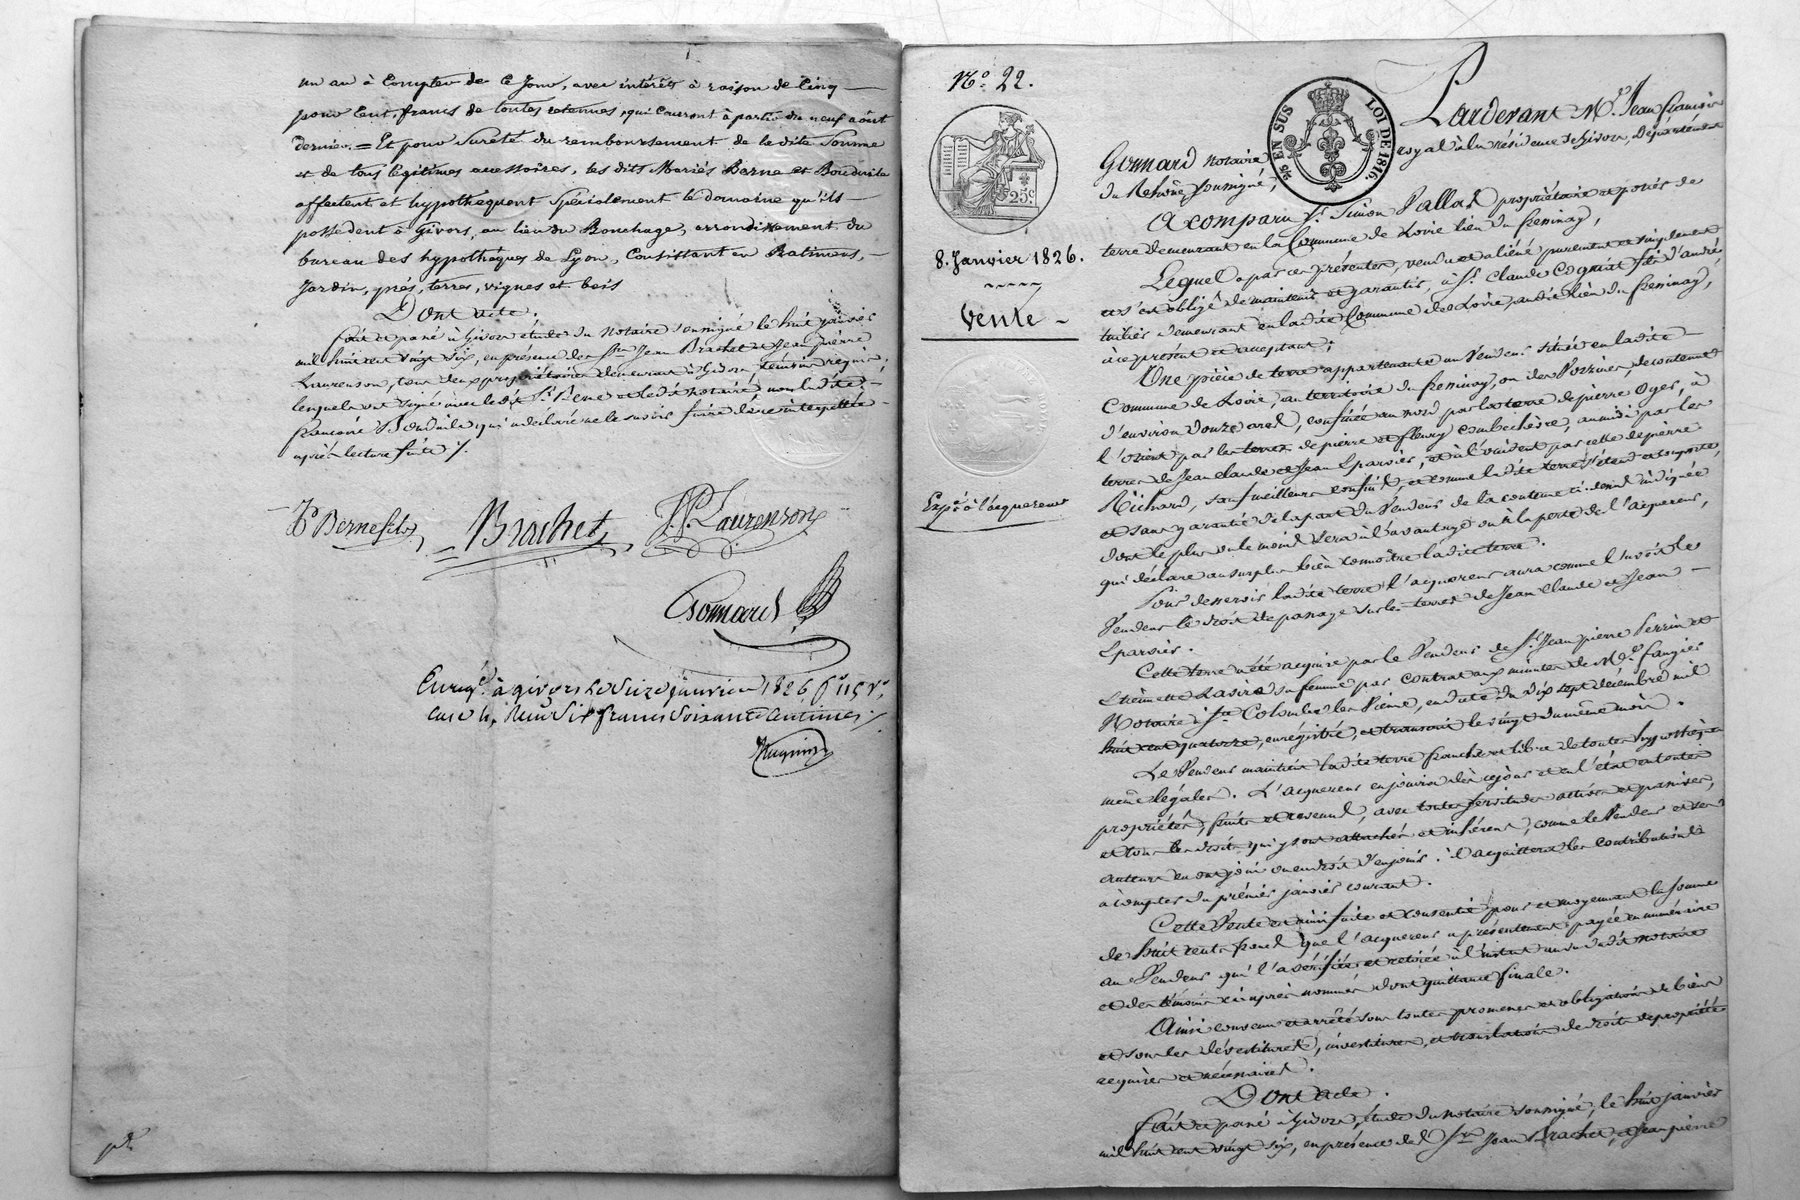 un an à Compter de Ce Jour, avec intérêts à raison de Cinq
pour Cent francs de toutes retenues, qui Courront à partir du neuf août
dernier. = Et pour Sureté du remboursement de la dite Somme
et de tous légitimes accessoires, les dits Mariés Berne et Bouduile
affectent et hypothequent Spécialement le domaine qu'ils
possedent à Givors, au lieu du Bouchage, arrondissement du
bureau des hypothèques de Lyon, Consistant en Batimens,
Jardin, prés, terres, vignes et bois
Dont acte.
fait et passé à Givors étude du notaire soussigné le huit janvier
mil huit cent vingt six, en présence des Srs Jean Brachet et Jean pierre
Laurenson, tous deux propriétaires demeurant à Givors, témoins requis;
lesquels ont signé avec le dit Sr Berne et le dit notaire, non ladite
françoise Bouduile qui a déclaré ne le savoir faire de ce interpellée
après lecture faite /.
Berne fils
Brachet
J.P. Laurenson
Gonnard
Enregé à givors le Seize janvier 1826 fo 115 vo
case 4. Reçu Six francs Soixante Centimes /.
No. 22.
25c
8. Janvier 1826.
Vente
Expéé à l'acquereur
EN SUS
LOI DE 1816.
Pardevant Me Jean françois
Gonnard notaire royal à la résidence de Givors, Département
du Rhône soussigné,
A comparu Sr. Simon Pallas propriétaire et potier de
terre demeurant en la Commune de Loire lieu du freninay,
Lequel a par ces présentes, vendu et aliéné purement et simplement
et s'est obligé de maintenir et garantir, à Sr. Claude Cognat fils d'andré,
tuilier demeurant en la dite Commune de Loire, audit lieu du freninay,
à ce présent et acceptant;
Une pièce de terre appartenante au Vendeur située en ladite
Commune de Loire, au territoire du freninay, ou des Perrines de contenue
d'environ douze ares, confinée au nord par la terre de pierre Oger, à
l'orient par les terres de pierre et fleury combechère, au midi par les
terres de Jean claude et Jean Sparvier, et à l'occident par celle de pierre
Richard, sauf meilleurs confins, et comme ladite terre s'étend et comporte,
et sans garantie de la part du Vendeur de la contenue ci-dessus indiquée
dont le plus ou le moins sera à l'avantage ou à la perte de l'acquereur,
qui déclare au surplus bien connoître ladite terre.
Pour desservir ladite terre l'acquereur aura comme l'avoit le
Vendeur le droit de passage sur les terres de Jean Claude et Jean
Sparvier.
Cette terre a été acquise par le Vendeur de Sr Jean pierre Perrin et
Etiennette Lasire sa femme par contrat aux minutes de Me fangier
Notaire à Ste Colombe les Vienne, en date du dix sept décembre mil
huit cent quatorze, enregistré, et transcrit le vingt du même mois.
Le Vendeur maintien ladite terre franche et libre de toute hypothèque
même légales. L'acquereur en jouira dès ce jour et en l'état en toutes
propriétés, fruits et revenus, avec toutes servitudes actives et passives,
et tous les droits qui y sont attachés et inhérens, comme le Vendeur et ses
auteurs en ont joui ou eu droit d'en jouir. il acquittera les contributions
à compter du premier janvier courant.
Cette Vente est ainsi faite et consentie pour et moyennant la somme
de huit cents francs que l'acquereur a présentement payée en numéraire
au Vendeur qui l'a vérifiée et retirée à l'instant au vu du dit notaire
et des témoins ci après nommés dont quittance finale.
Ainsi convenu et arrêté sous toutes promesses et obligations de biens
et sous les dévestitures, investitures, et translations de droits de propriété
requises et nécessaires.
Dont acte.
fait et passé à Givors, étude du notaire soussigné, le huit janvier
mil huit cent vingt six, en présence des Srs Jean Brachet, et Jean pierre